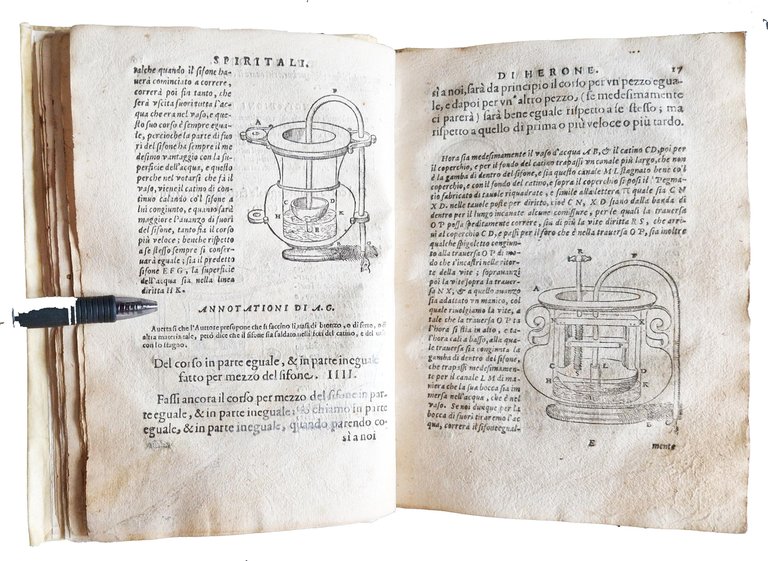 SPIRITALI.
valche quando il sifone ha-
uerà cominciato a correre,
correrà poi sin tanto, che
serà vscita fuori tutta l'ac
qua che era nel vaso, e que-
sto suo corso è sempre egua-
le, perche la parte di fuo-
ri del sifone ha sempre il me
desimo vantaggio con la su-
perficie dell'acqua, e quello
perche nel votarsi che fà il
vaso, viene il catino di con-
tinuo calando cõ'l sifone à
lui congiunto, e quanto sarà
maggiore l'auanzo di fuori
del sifone, tanto fia il corso
più veloce; benche rispetto
a se stesso sempre si conser-
uarà eguale; sia il predetto
sifone E F G, la superficie
dell'acqua sia nella linea
diritta H K.
P
A
C
D
H
K
B
ANNOTATIONI DI A.G.
Auertasi che l'Auttore presopone che si faccino li vasi di bronzo, o di ferro, o di
altra materia tale, però dice che il sifone sia saldato nelli fori del catino, e del vaso
con lo stagno.
Del corso in parte eguale, & in parte ineguale
fatto per mezzo del sifone. IIII.
Fassi ancora il corso per mezzo del sifone in par
te eguale, & in parte ineguale; chiamo in parte
eguale, & in parte ineguale, quando parendo co
sì a noi
DI HERONE. 17
sì a noi, sarà da principio il corso per vn pezzo egua-
le, e dapoi per vn' altro pezzo (se medesimamente
ci parerà) sarà bene eguale rispetto a se stesso; ma
rispetto a quello di prima o più veloce o più tardo.
Hora sia medesimamente il vaso d'acqua A B, & il catino C D, poi per
il coperchio, e per il fondo del catino trapassi vn canale più largo, che non
è la gamba di dentro del sifone, e sia questo canale M L stagnato bene co'l
coperchio, e con il fondo del catino, e sopra il coperchio si posi il Pegma-
rio fabricato di tauole riquadrate, e simile alla lettera π quale sia C N
X D. nelle tauole poste per diritto, cioè C N, X D siano dalla banda di
dentro per il lungo incauate alcune comissure, per le quali la trauersa
O P possa speditamente correre, sia di più la vite diritta R S, che arri-
ui al coperchio C D, e passi per il foro che è nella trauersa O P, sia inoltre
qualche spigoletto congiunto
alla trauersa O P di modo
che s'incastri nelle ritor-
te della vite; sopranuanzi
poi la vite sopra la trauersa
N X, & a quello auanzo
sia adattato vn manico, col
quale riuolgiamo la vite, a
l'hora si stia in alto, e ta-
l'hora cali a basso, alla qua-
le trauersa sia congiunta la
gamba di dentro del sifone,
che trapassi medesimamen-
te per il canale L M di ma-
niera che la sua bocca sia im
mersa nell'acqua, che è nel
vaso. Se noi dunque per la
bocca di fuori tiraremo l'ac
qua, correrà il sifone egual-
R
A
E
mente